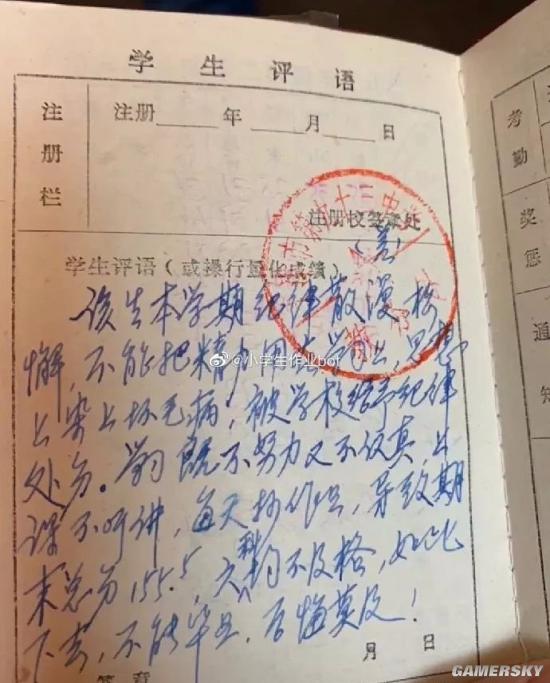 学生评语
注册栏
注册____年____月____日
注册校签章处
学生评语(或操行量化成绩)
(差)
该生本学期纪律散漫松
懈,不能把精力用在学习上,思想
上染上坏毛病,被学校给予纪律
处分。学习既不努力又不认真上
课不听讲,每天抄作业,导致期
末总分155.5,六科均不及格,如此
下去,不能毕业,后悔莫及!
月 日
签章
@小学生作业bot
考勤
奖惩
通知
GAMERSKY